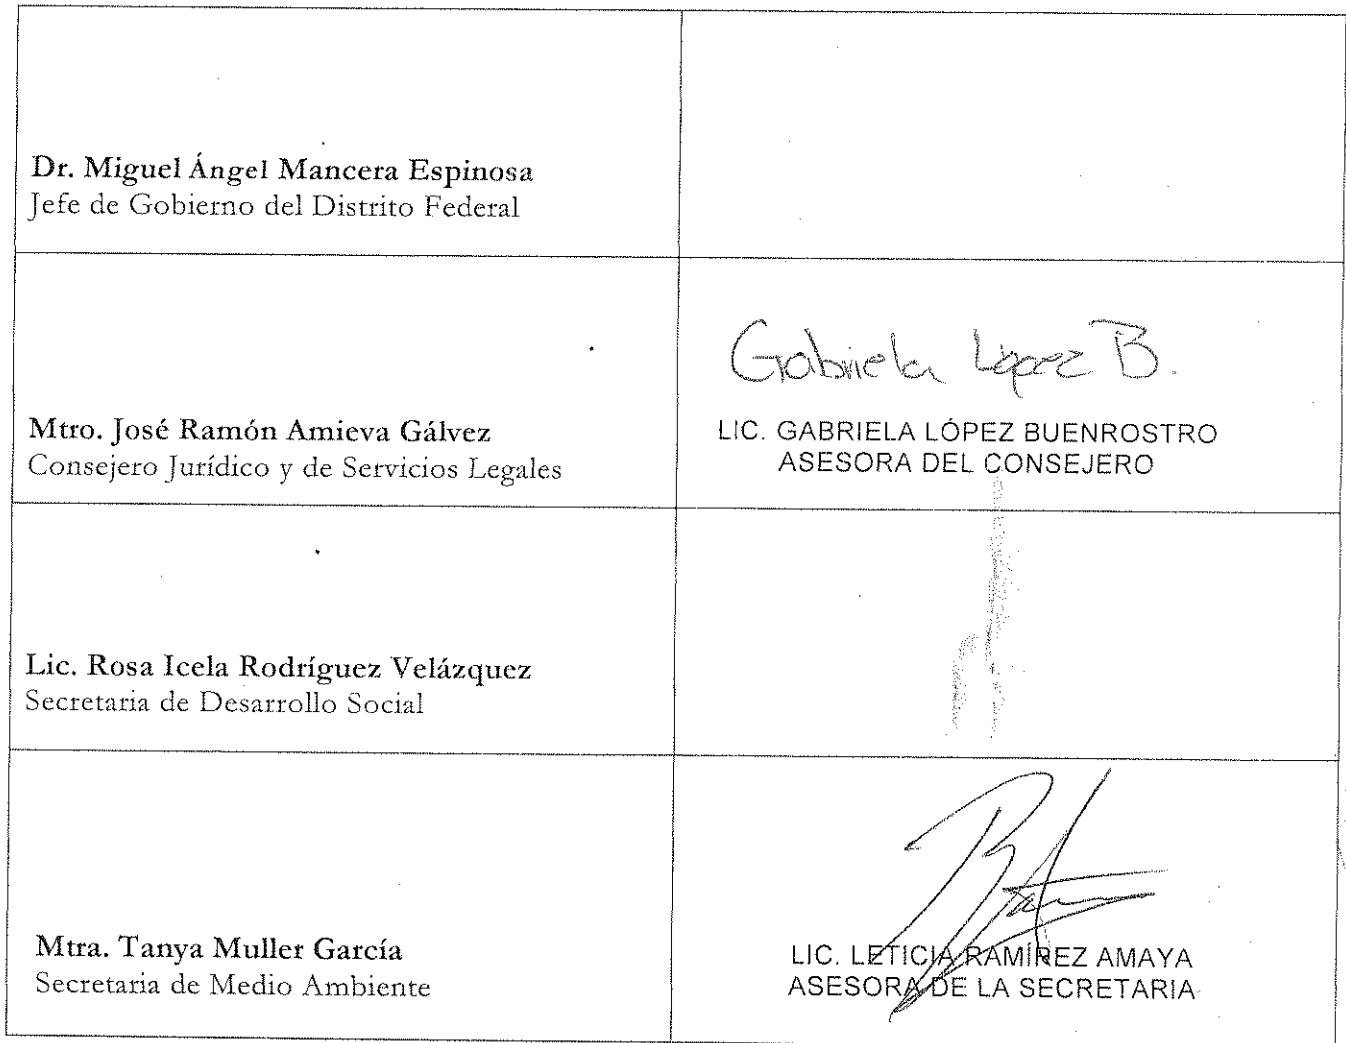 Dr. Miguel Ángel Mancera Espinosa
Jefe de Gobierno del Distrito Federal
Gabriela López B.
Mtro. José Ramón Amieva Gálvez
Consejero Jurídico y de Servicios Legales
LIC. GABRIELA LÓPEZ BUENROSTRO
ASESORA DEL CONSEJERO
Lic. Rosa Icela Rodríguez Velázquez
Secretaria de Desarrollo Social
Mtra. Tanya Muller García
Secretaria de Medio Ambiente
LIC. LETICIA RAMÍREZ AMAYA
ASESORA DE LA SECRETARIA